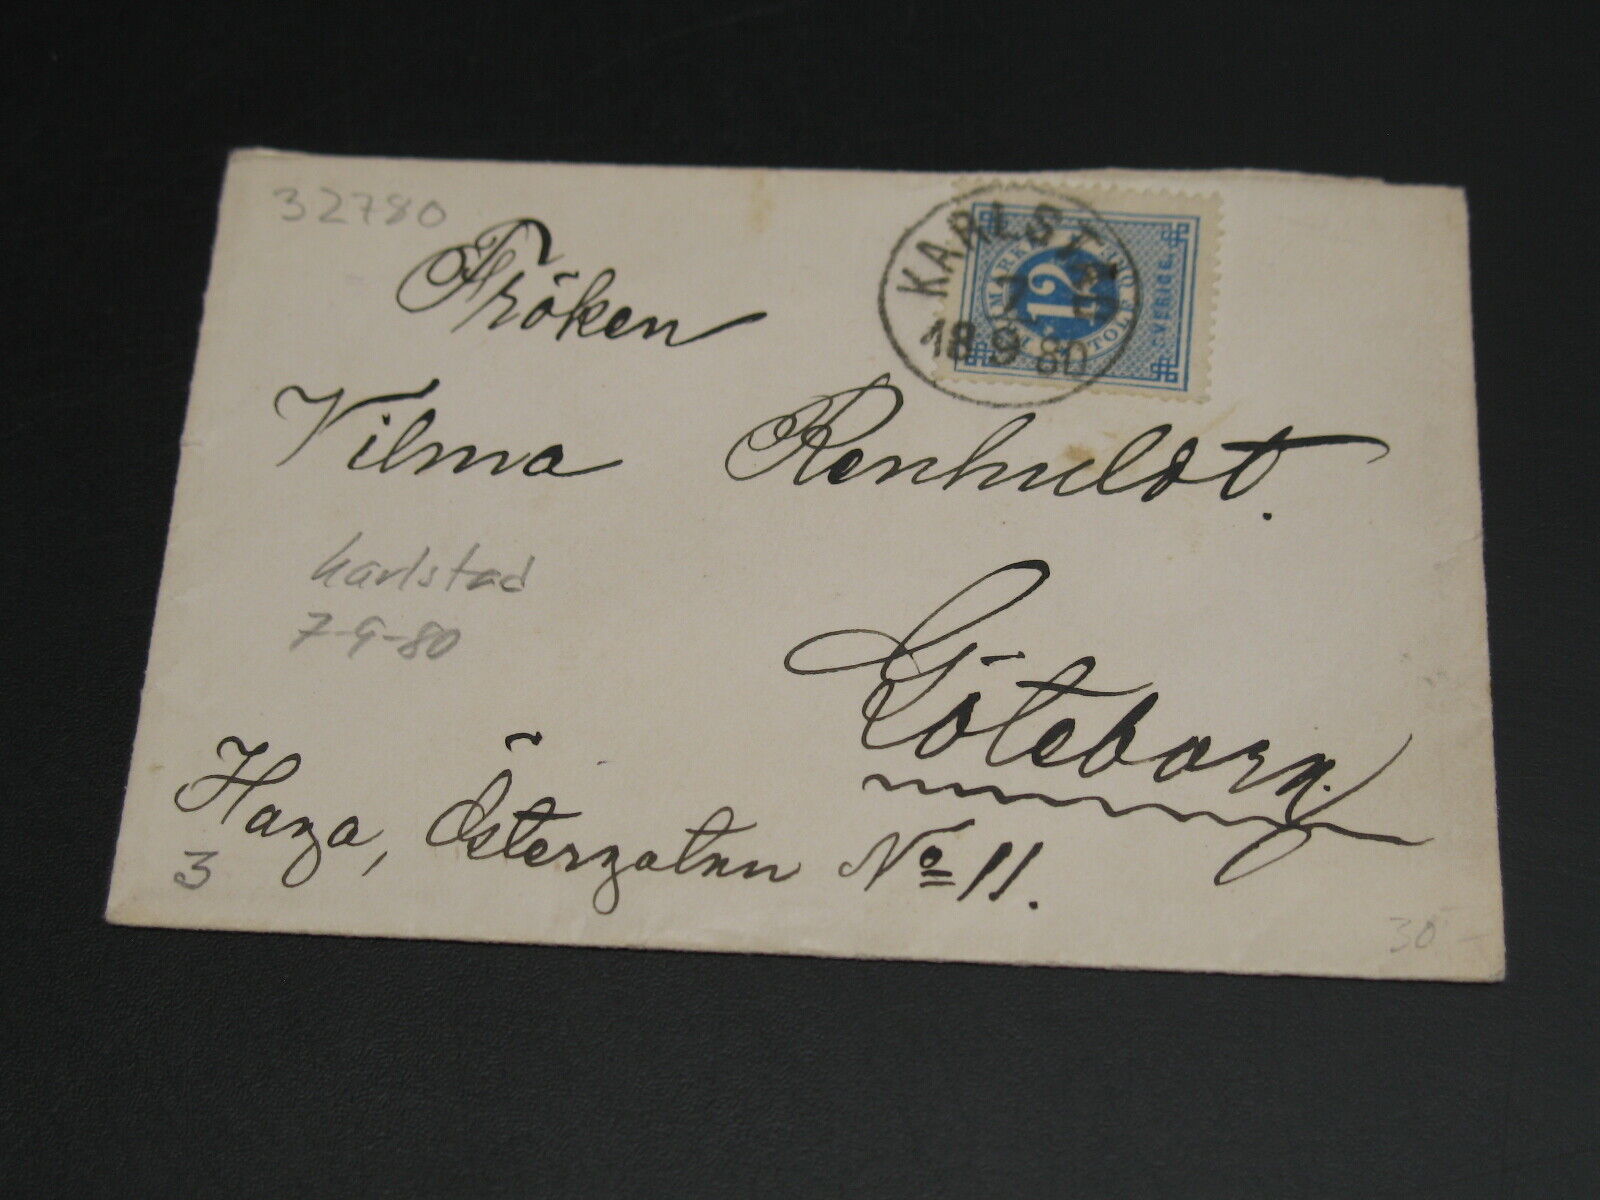 32780
KARLSTAD
7
18 9 80
FRIMÄRKE
12
TOLF
SVERIGE.
Fröken
Vilma Renhuldt.
Karlstad
7-9-80
Göteborg.
Haga, Östergatan No 11.
3
30